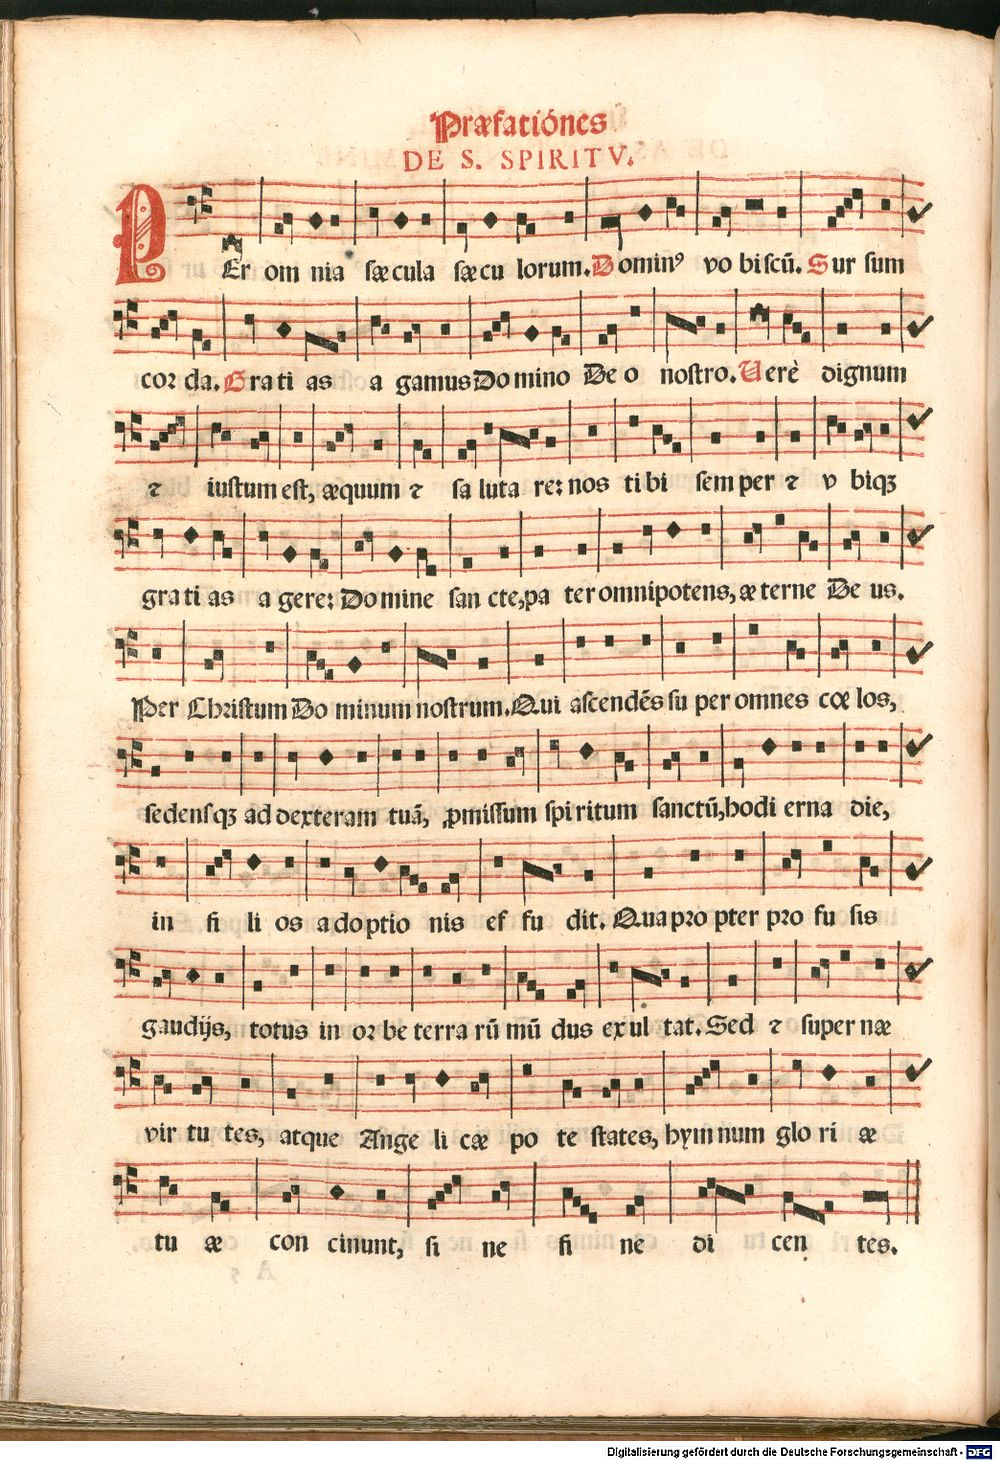 Præfatiónes
DE S. SPIRITV.
PEr om nia sæcula sæcu lorum. Dominꝰ vo biscũ. Sur sum
cor da. Grati as a gamus Domino Deo nostro. Uerè dignum
⁊ iustum est, æquum ⁊ sa luta re: nos tibi semper ⁊ v biqꝫ
grati as a gere: Domine san cte, pa ter omnipotens, æ terne De us.
Per Christum Do minum nostrum. Qui ascendẽs su per omnes cœ los,
sedensqꝫ ad dexteram tuã, ꝓmissum spiritum sanctũ, hodi erna die,
in fi li os adoptio nis ef fu dit. Quapro pter pro fu sis
gaudijs, totus in or be terra rũ mũ dus ex ul tat. Sed ⁊ super næ
vir tu tes, atque Ange li cæ po te states, hym num glo ri æ
tu æ con cinunt, si ne fi ne di cen tes.
Digitalisierung gefördert durch die Deutsche Forschungsgemeinschaft - DFG